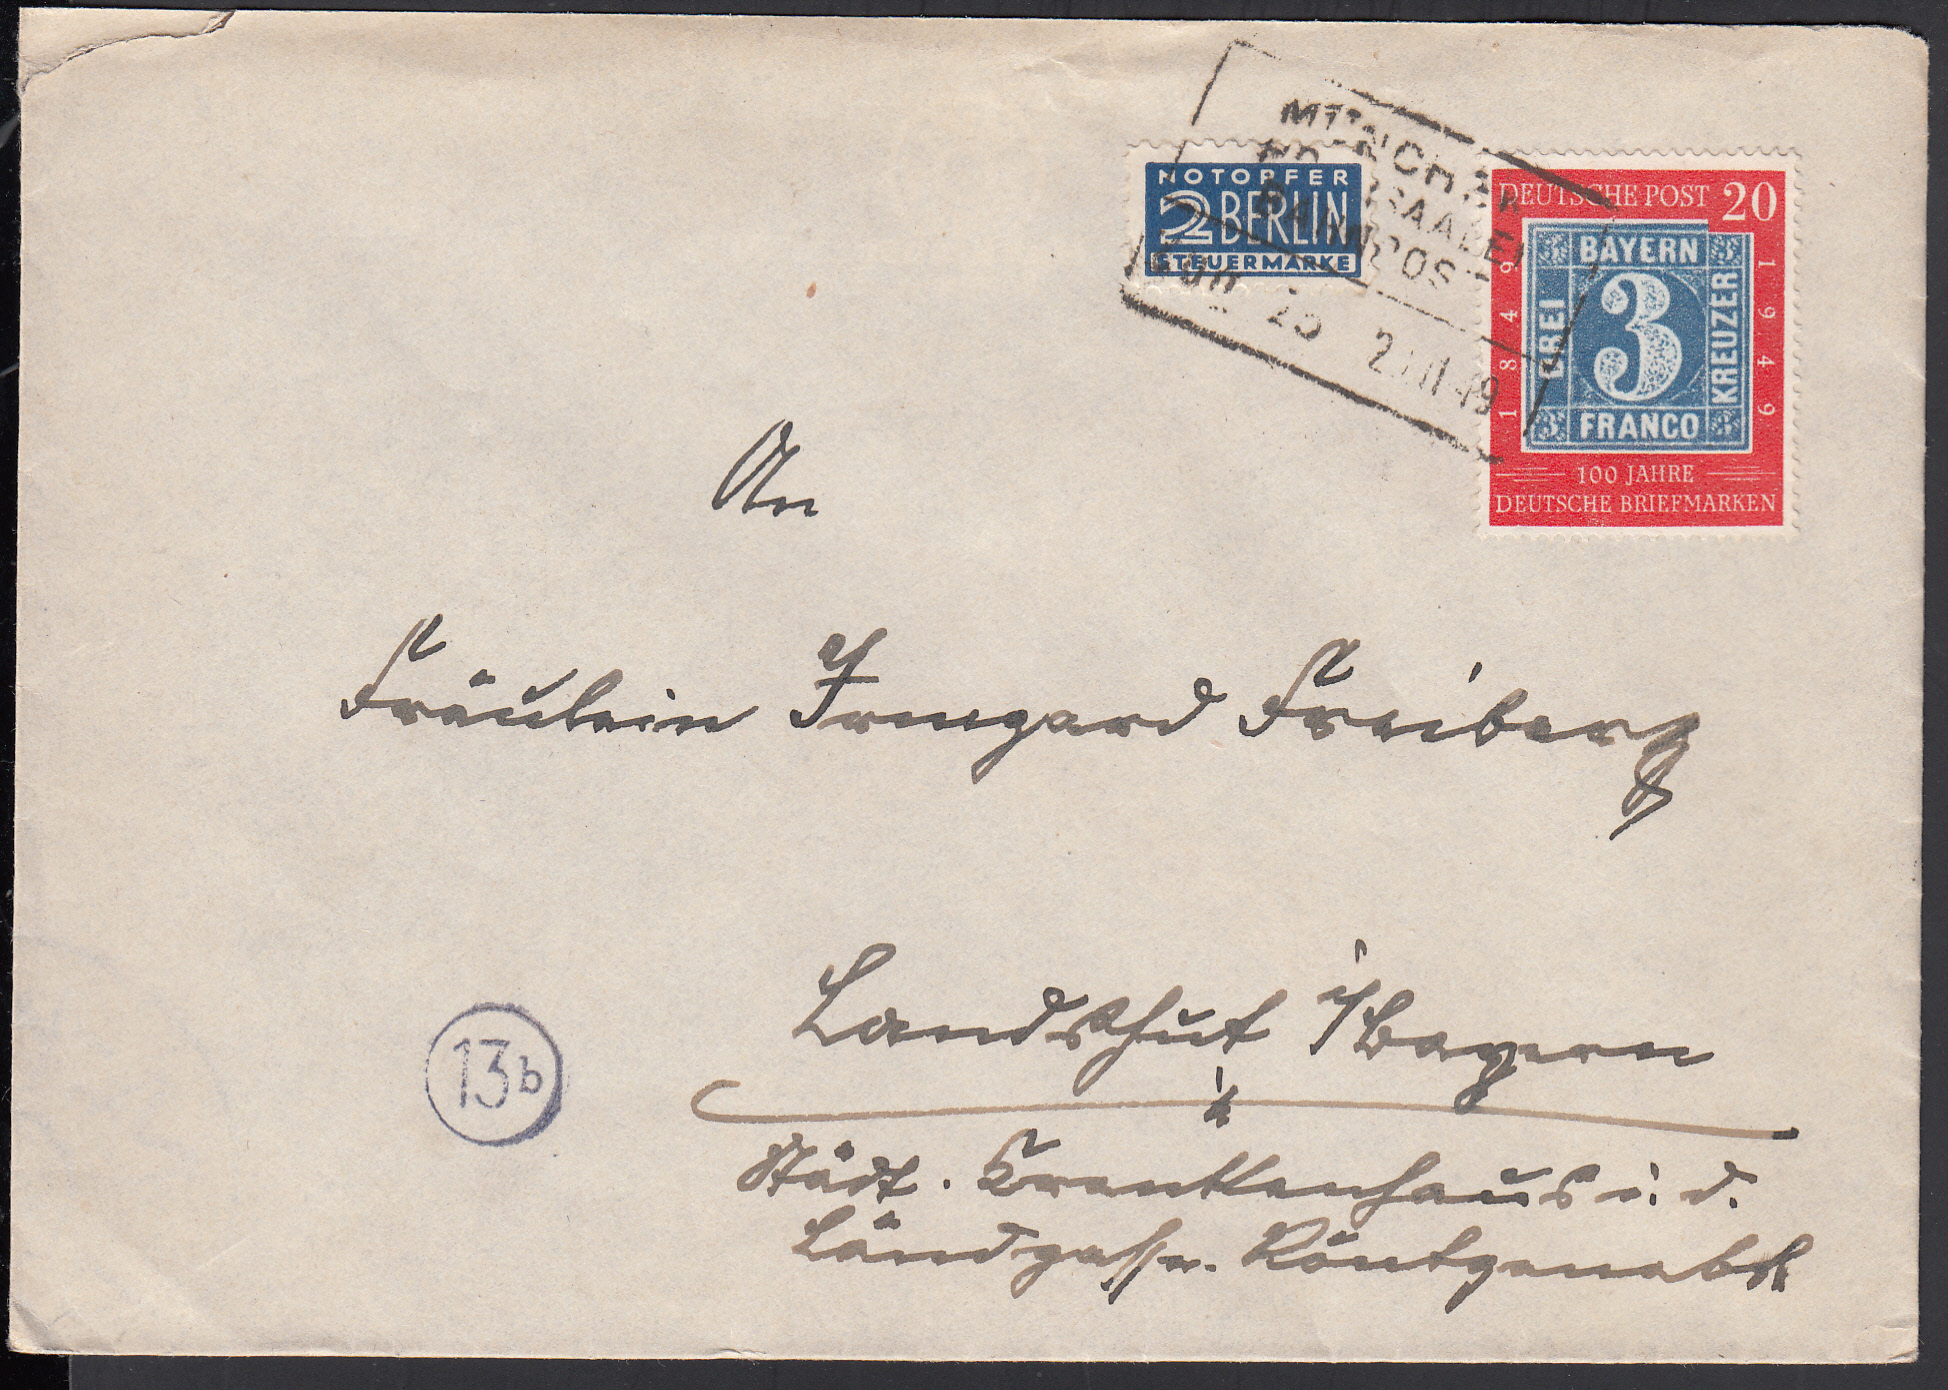 MÜNCHEN
BAHNPOST
ZUG
NOTOPFER
2 BERLIN
STEUERMARKE
DEUTSCHE POST 20
1849
1949
BAYERN
DREI
3
KREUZER
FRANCO
3 3 3 3
100 JAHRE
DEUTSCHE BRIEFMARKEN
An
Fräulein Irmgard Freiberg
Landshut i/Bayern
13b
Städt. Krankenhaus i. d.
Ländgasse. Röntgenabt